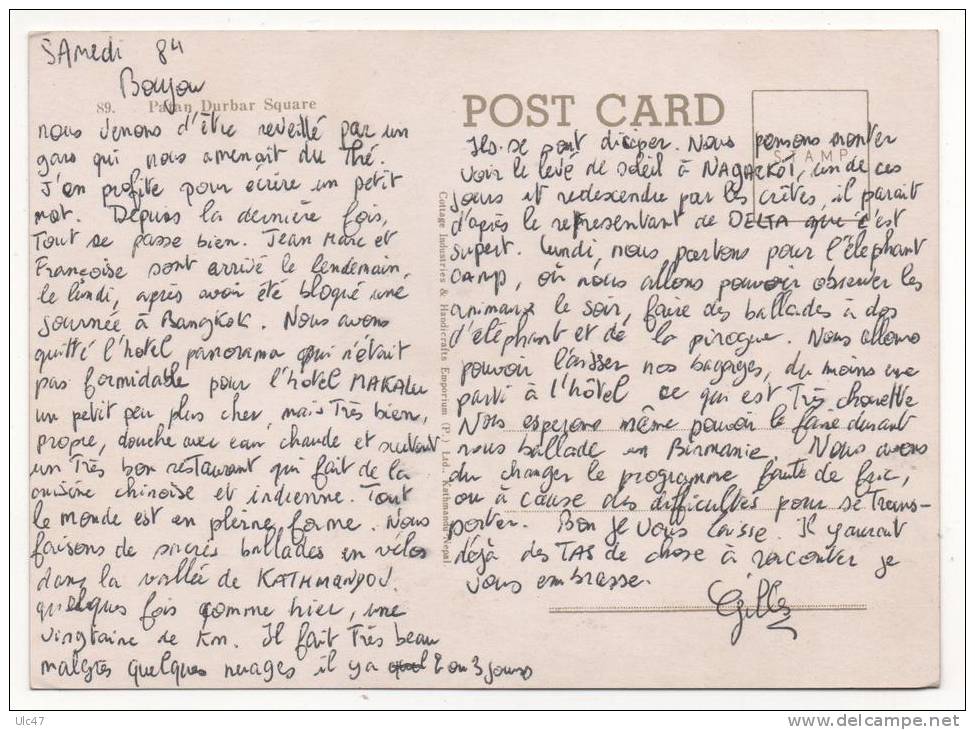 SAMedi 84
Bonjour
89. Patan Durbar Square
nous venons d'être reveillé par un
gars qui nous amenait du Thé.
J'en profite pour écrire un petit
mot. Depuis la dernière fois,
Tout se passe bien. Jean Marc et
Françoise sont arrivé le lendemain,
le lundi, après avoir été bloqué une
journée à BANGKOK. Nous avons
quitté l'hotel panorama qui n'était
pas formidable pour l'hotel MAKALU
un petit peu plus cher, mais Très bien,
propre, douche avec eau chaude et surtout
un Très bon restaurant qui fait de la
cuisine chinoise et indienne. Tout
le monde est en pleine forme. Nous
faisons de sacrés ballades en vélos
dans la vallée de KATHMANDOU.
quelques fois comme hier, une
vingtaine de Km. Il fait Très beau
malgres quelques nuages il y a 2 ou 3 jours
Cottage Industries & Handicrafts Emporium (P.) Ltd. Kathmandu Nepal.
POST CARD
STAMP
Ils se sont disiper. Nous pensons monter
voir le levé de soleil à NAGARKOT, un de ces
jours et redescendre par les crêtes, il parait
d'après le representant de DELTA que c'est
supert. Lundi, nous partons pour l'éléphant
CAMP, où nous allons pouvoir observer les
animaux le soir, faire des ballades à dos
d'éléphant et de la pirogue. Nous allons
pouvoir laisser nos bagages, du moins une
parti à l'hôtel ce qui est Très chouette
Nous esperons même pouvoir le faire durant
nous ballade en Birmanie. Nous avons
du changer le programme faute de fric,
ou à cause des difficultés pour se Trans-
porter. Bon je vous laisse. Il y aurait
déjà des TAS de chose à raconter je
vous embrasse.
Gilles
Ulc47
delcampe.net